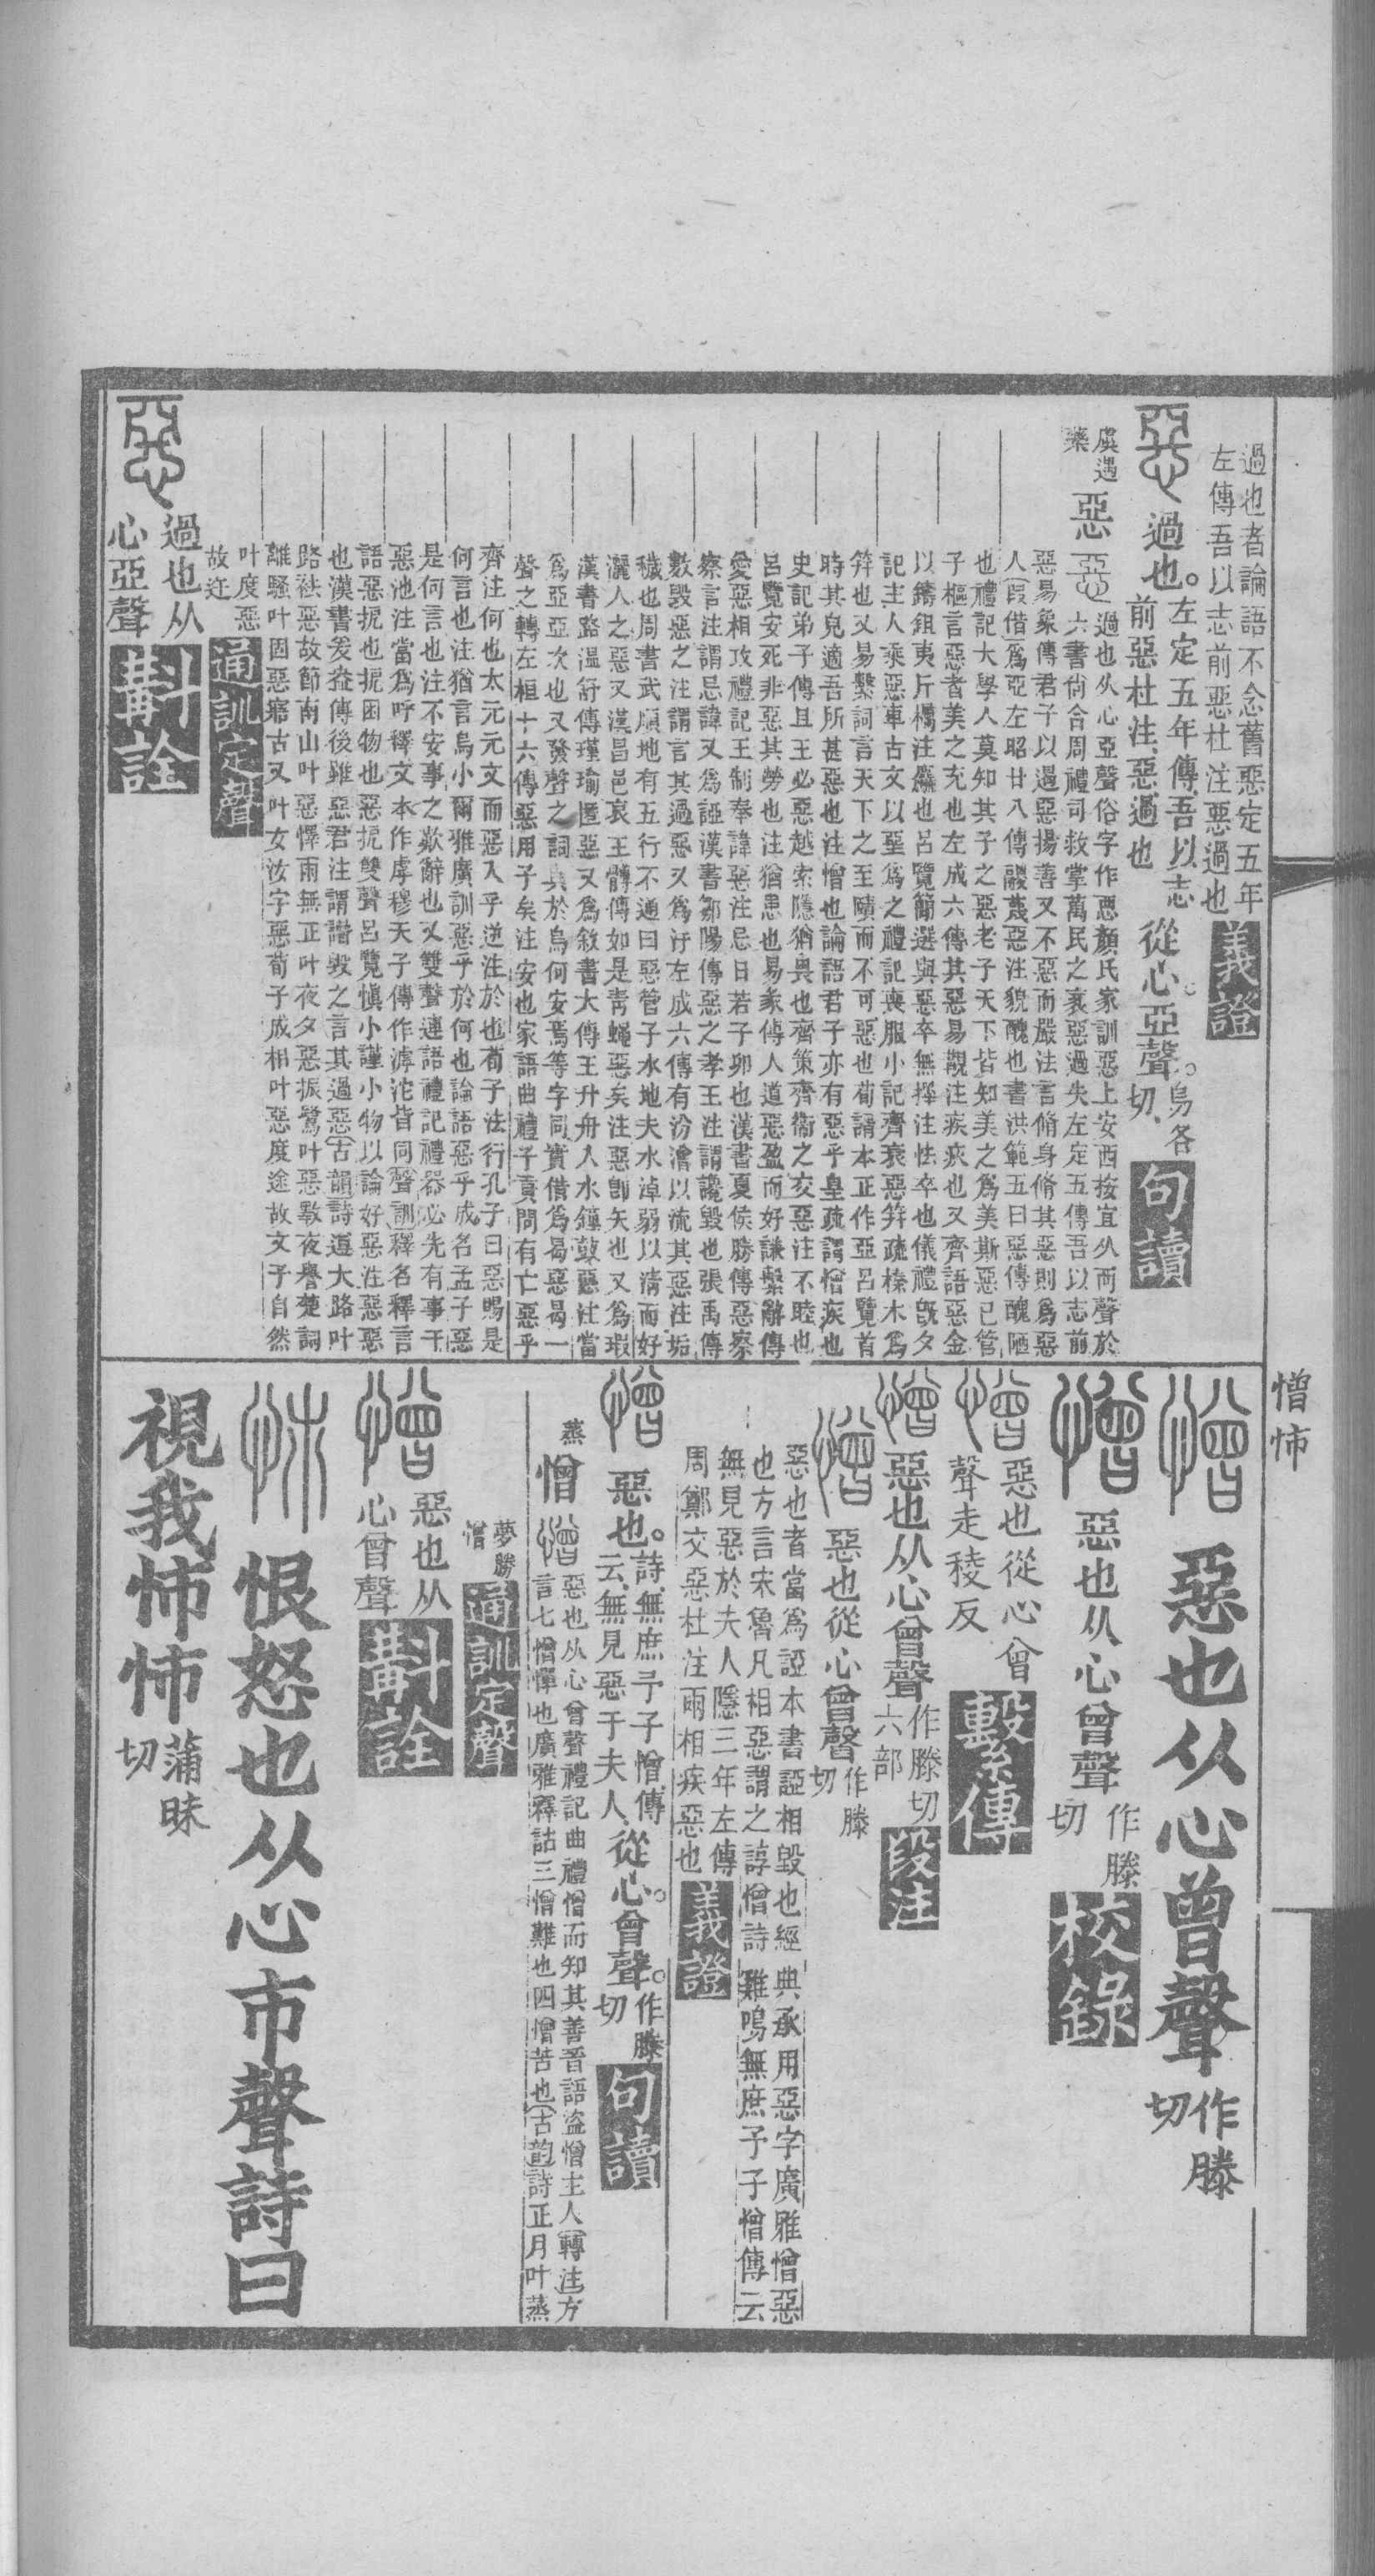 過也者論語不念舊惡定五年
左傳吾以志前惡杜注惡過也
義證
過也。左定五年傳、吾以志
前惡杜注、惡、過也
從心。亞聲。烏各
切、
句讀
虞遇
藥
惡
過也从心亞聲俗字作悪顏氏家訓惡上安西按宜从而聲於
六書尙合周禮司救掌萬民之衺惡過失左定五傳吾以志前
惡易象傳君子以遏惡揚善又不惡而嚴法言脩身脩其惡則爲惡
人(叚借)爲亞左昭廿八傳鬷蔑惡注貌醜也書洪範五曰惡傳醜陋
也禮記大學人莫知其子之惡老子天下皆知美之爲美斯惡已管
子樞言惡者美之充也左成六傳其惡易覯注疾疢也又齊語惡金
以鑄鉏夷斤欘注麤也呂覽簡選與惡卒無擇注怯卒也儀禮旣夕
記主人乘惡車古文以堊爲之禮記喪服小記齊衰惡笄疏榛木爲
笄也又易繫詞言天下之至賾而不可惡也荀諝本正作亞呂覽首
時其皃適吾所甚惡也注憎也論語君子亦有惡乎皇疏謂憎疾也
史記弟子傳且王必惡越索隱猶畏也齊策齊衞之交惡注不睦也
呂覽安死非惡其勞也注猶患也易彖傳人道惡盈而好謙繫辭傳
愛惡相攻禮記王制奉諱惡注忌日若子卯也漢書夏侯勝傳惡察
察言注謂忌諱又爲誣漢書鄒陽傳惡之孝王注謂讒毀也張禹傳
數毀惡之注謂言其過惡又爲汙左成六傳有汾澮以流其惡注垢
穢也周書武順地有五行不通曰惡管子水地夫水淖弱以清而好
灑人之惡又漢昌邑哀王髆傳如是靑蠅惡矣注惡卽矢也又爲瑕
漢書路溫舒傳瑾瑜匿惡又爲敘書大傳王升舟入水鐘鼓惡注當
爲亞亞次也又發聲之詞與於烏何安焉等字同實借爲曷惡曷一
聲之轉左桓十六傳惡用子矣注安也家語曲禮子貢問有亡惡乎
齊注何也太元元文而惡入乎逆注於也荀子法行孔子曰惡賜是
何言也注猶言烏小爾雅廣訓惡乎於何也論語惡乎成名孟子惡
是何言也注不安事之歎辭也又雙聲連語禮記禮器必先有事于
惡池注當爲呼釋文本作虖穆天子傳作滹沱皆同(聲訓)釋名釋言
語惡扼也扼困物也惡扼雙聲呂覽愼小謹小物以論好惡注惡惡
也漢書爰盎傳後雖惡君注謂譖毀之言其過惡(古韻)詩遵大路叶
路袪惡故節南山叶惡懌雨無正叶夜夕惡振鷺叶惡斁夜譽楚詞
離騷叶固惡寤古又叶女汝字惡荀子成相叶惡度途故文子自然
叶度惡
故迕
通訓定聲
過也从
心亞聲
斠詮
憎怖
憎 惡也从心曾聲作滕
切
惡也从心曾聲作滕
切
校錄
惡也從心曾
聲走稜反
繫傳
惡也从心曾聲作滕切
六部
段注
惡也從心曾聲作滕
切
惡也者當爲誣本書誣相毀也經典承用惡字廣雅憎惡
也方言宋魯凡相惡謂之諄憎詩雞鳴無庶予子憎傳云
無見惡於夫人隱三年左傳
周鄭交惡杜注兩相疾惡也
義證
惡也。詩、無庶予子憎、傳
云、無見惡于夫人、從心。曾聲。作滕
切
句讀
蒸
憎
惡也从心曾聲禮記曲禮憎而知其善晉語盜憎主人(轉注)方
言七憎憚也廣雅釋詁三憎難也四憎苦也(古韵)詩正月叶蒸
夢勝
憎
通訓定聲
惡也从
心曾聲
斠詮
恨怒也从心巿聲詩曰
視我怖怖蒲昧
切